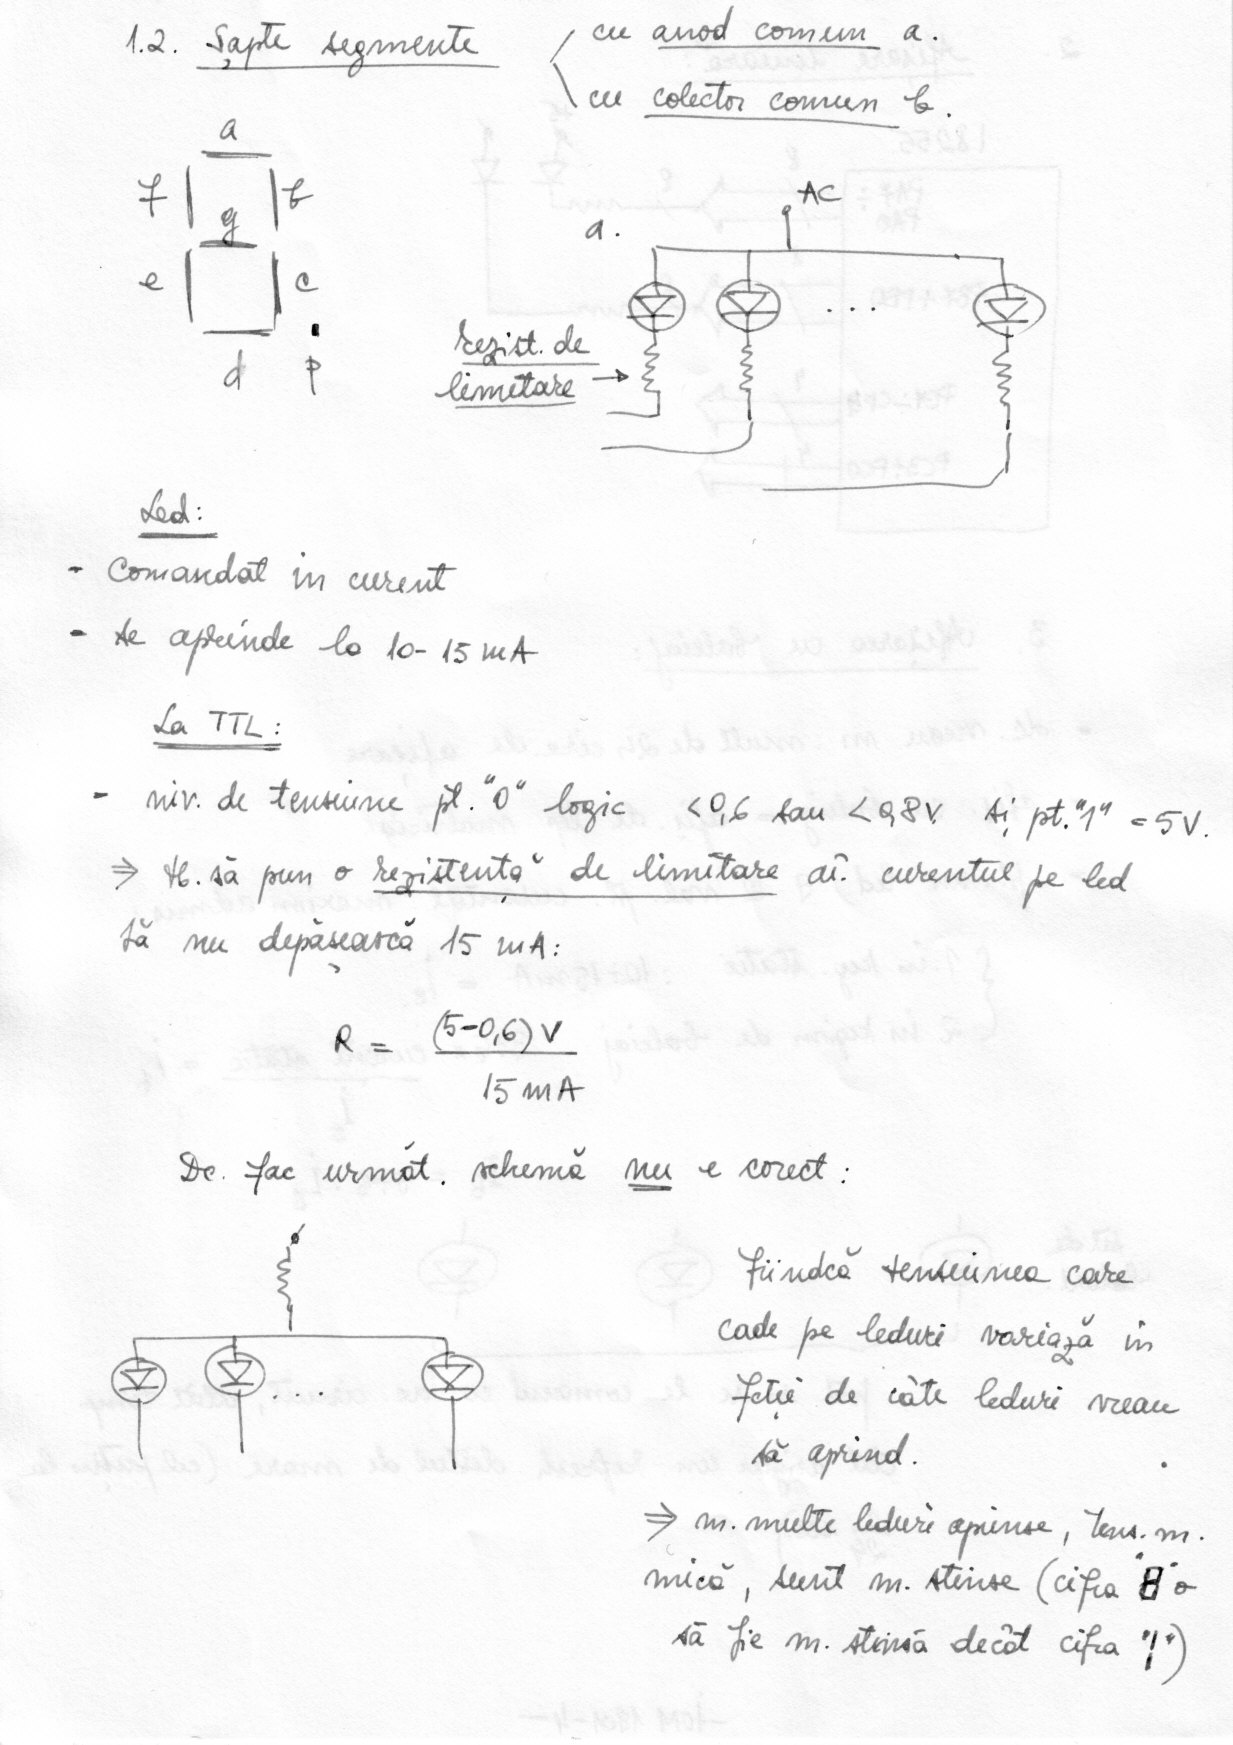 1.2. Șapte segmente
cu anod comun a.
cu colector comun b.
a
f
b
g
e
c
d
p
a.
AC
rezist. de
limitare →
...
Led:
- Comandat in curent
- se aprinde la 10-15 mA
La TTL:
- niv. de tensiune pt. "0" logic <0,6 sau <0,8V. și pt. "1" = 5V.
⇒ tb. să pun o rezistență de limitare aî. curentul pe led
să nu depășească 15 mA:
R = (5-0,6) V
15 mA
Dc. fac următ. schemă nu e corect:
...
fiindcă tensiunea care
cade pe leduri variază în
fcție de câte leduri vreau
să aprind.
⇒ m. multe leduri aprinse, tens. m.
mică, sunt m. stinse (cifra "8" o
să fie m. stinsă decât cifra "1")